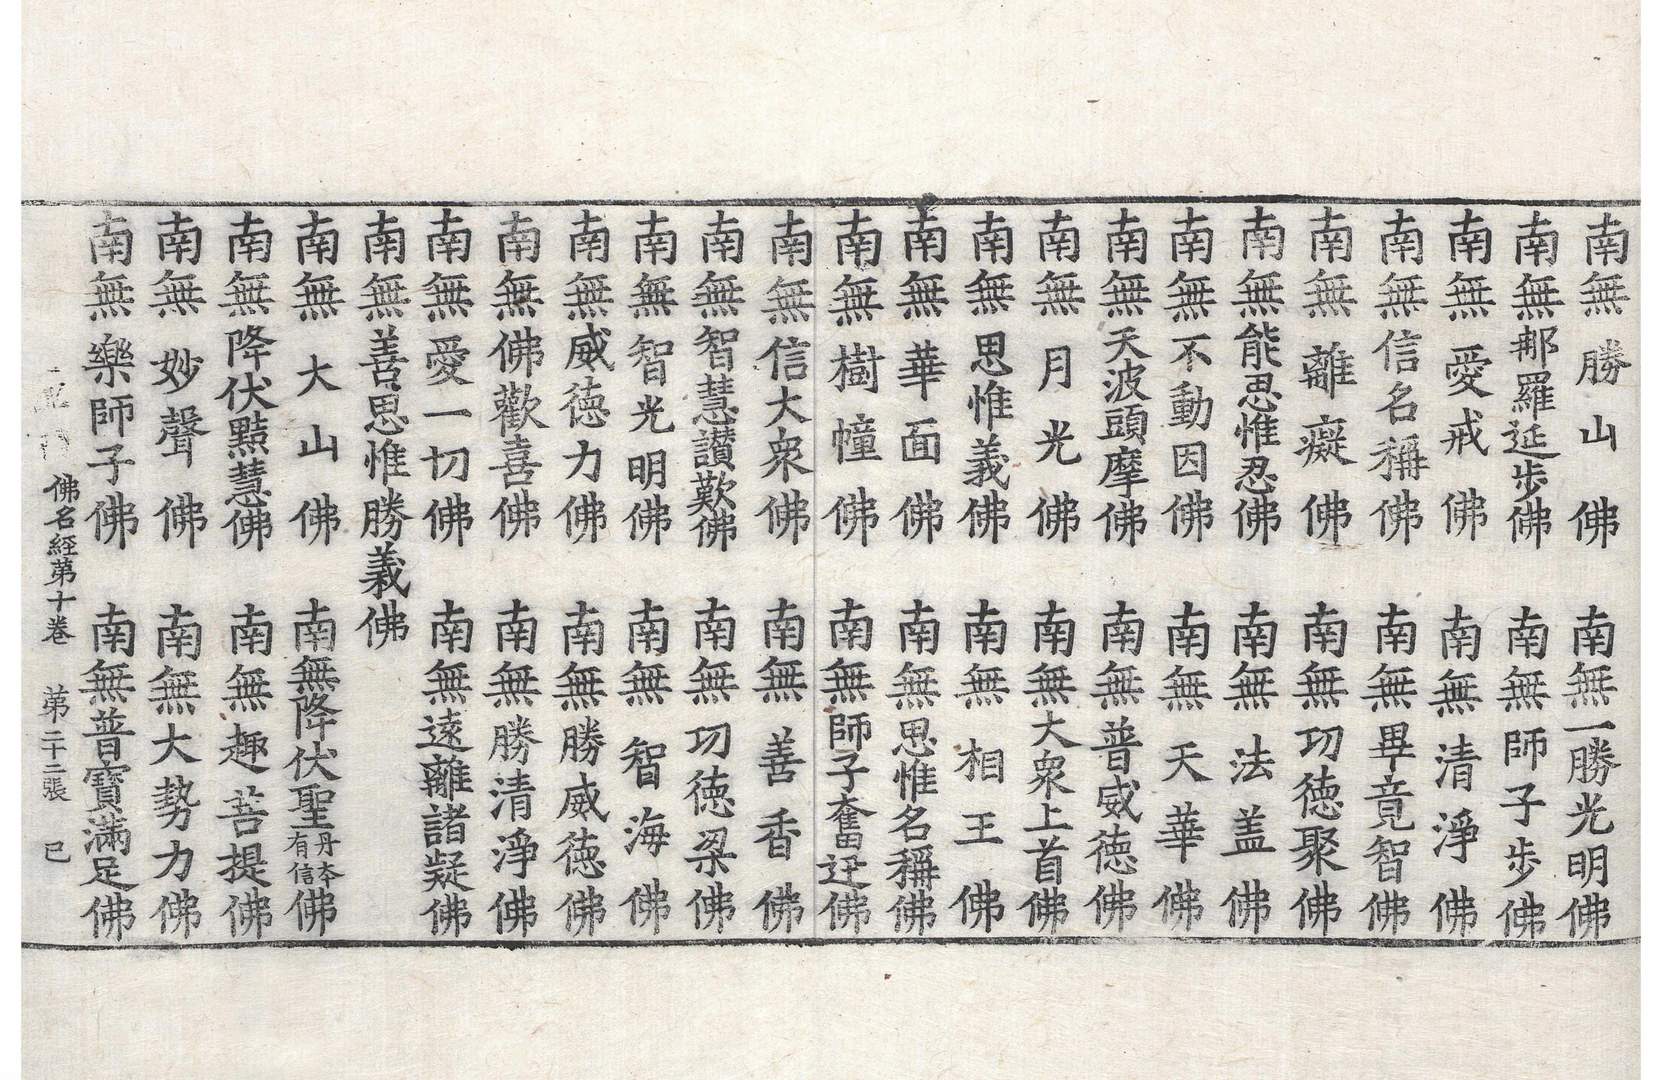 南無勝山佛　南無一勝光明佛
南無那羅延步佛　南無師子步佛
南無愛戒佛　南無清淨佛
南無信名稱佛　南無畢竟智佛
南無離癡佛　南無功德聚佛
南無能思惟忍佛　南無法盖佛
南無不動因佛　南無天華佛
南無天波頭摩佛　南無普威德佛
南無月光佛　南無大衆上首佛
南無思惟義佛　南無相王佛
南無華面佛　南無思惟名稱佛
南無樹幢佛　南無師子奮迅佛
南無信大衆佛　南無善香佛
南無智慧讃歎佛　南無功德梁佛
南無智光明佛　南無智海佛
南無威德力佛　南無勝威德佛
南無佛歡喜佛　南無勝清淨佛
南無愛一切佛　南無遠離諸疑佛
南無善思惟勝義佛
南無大山佛　南無降伏聖丹本有信佛
南無降伏黠慧佛　南無趣菩提佛
南無妙聲佛　南無大勢力佛
南無樂師子佛　南無普寶滿足佛
佛名經第十卷　第二十二張　巳